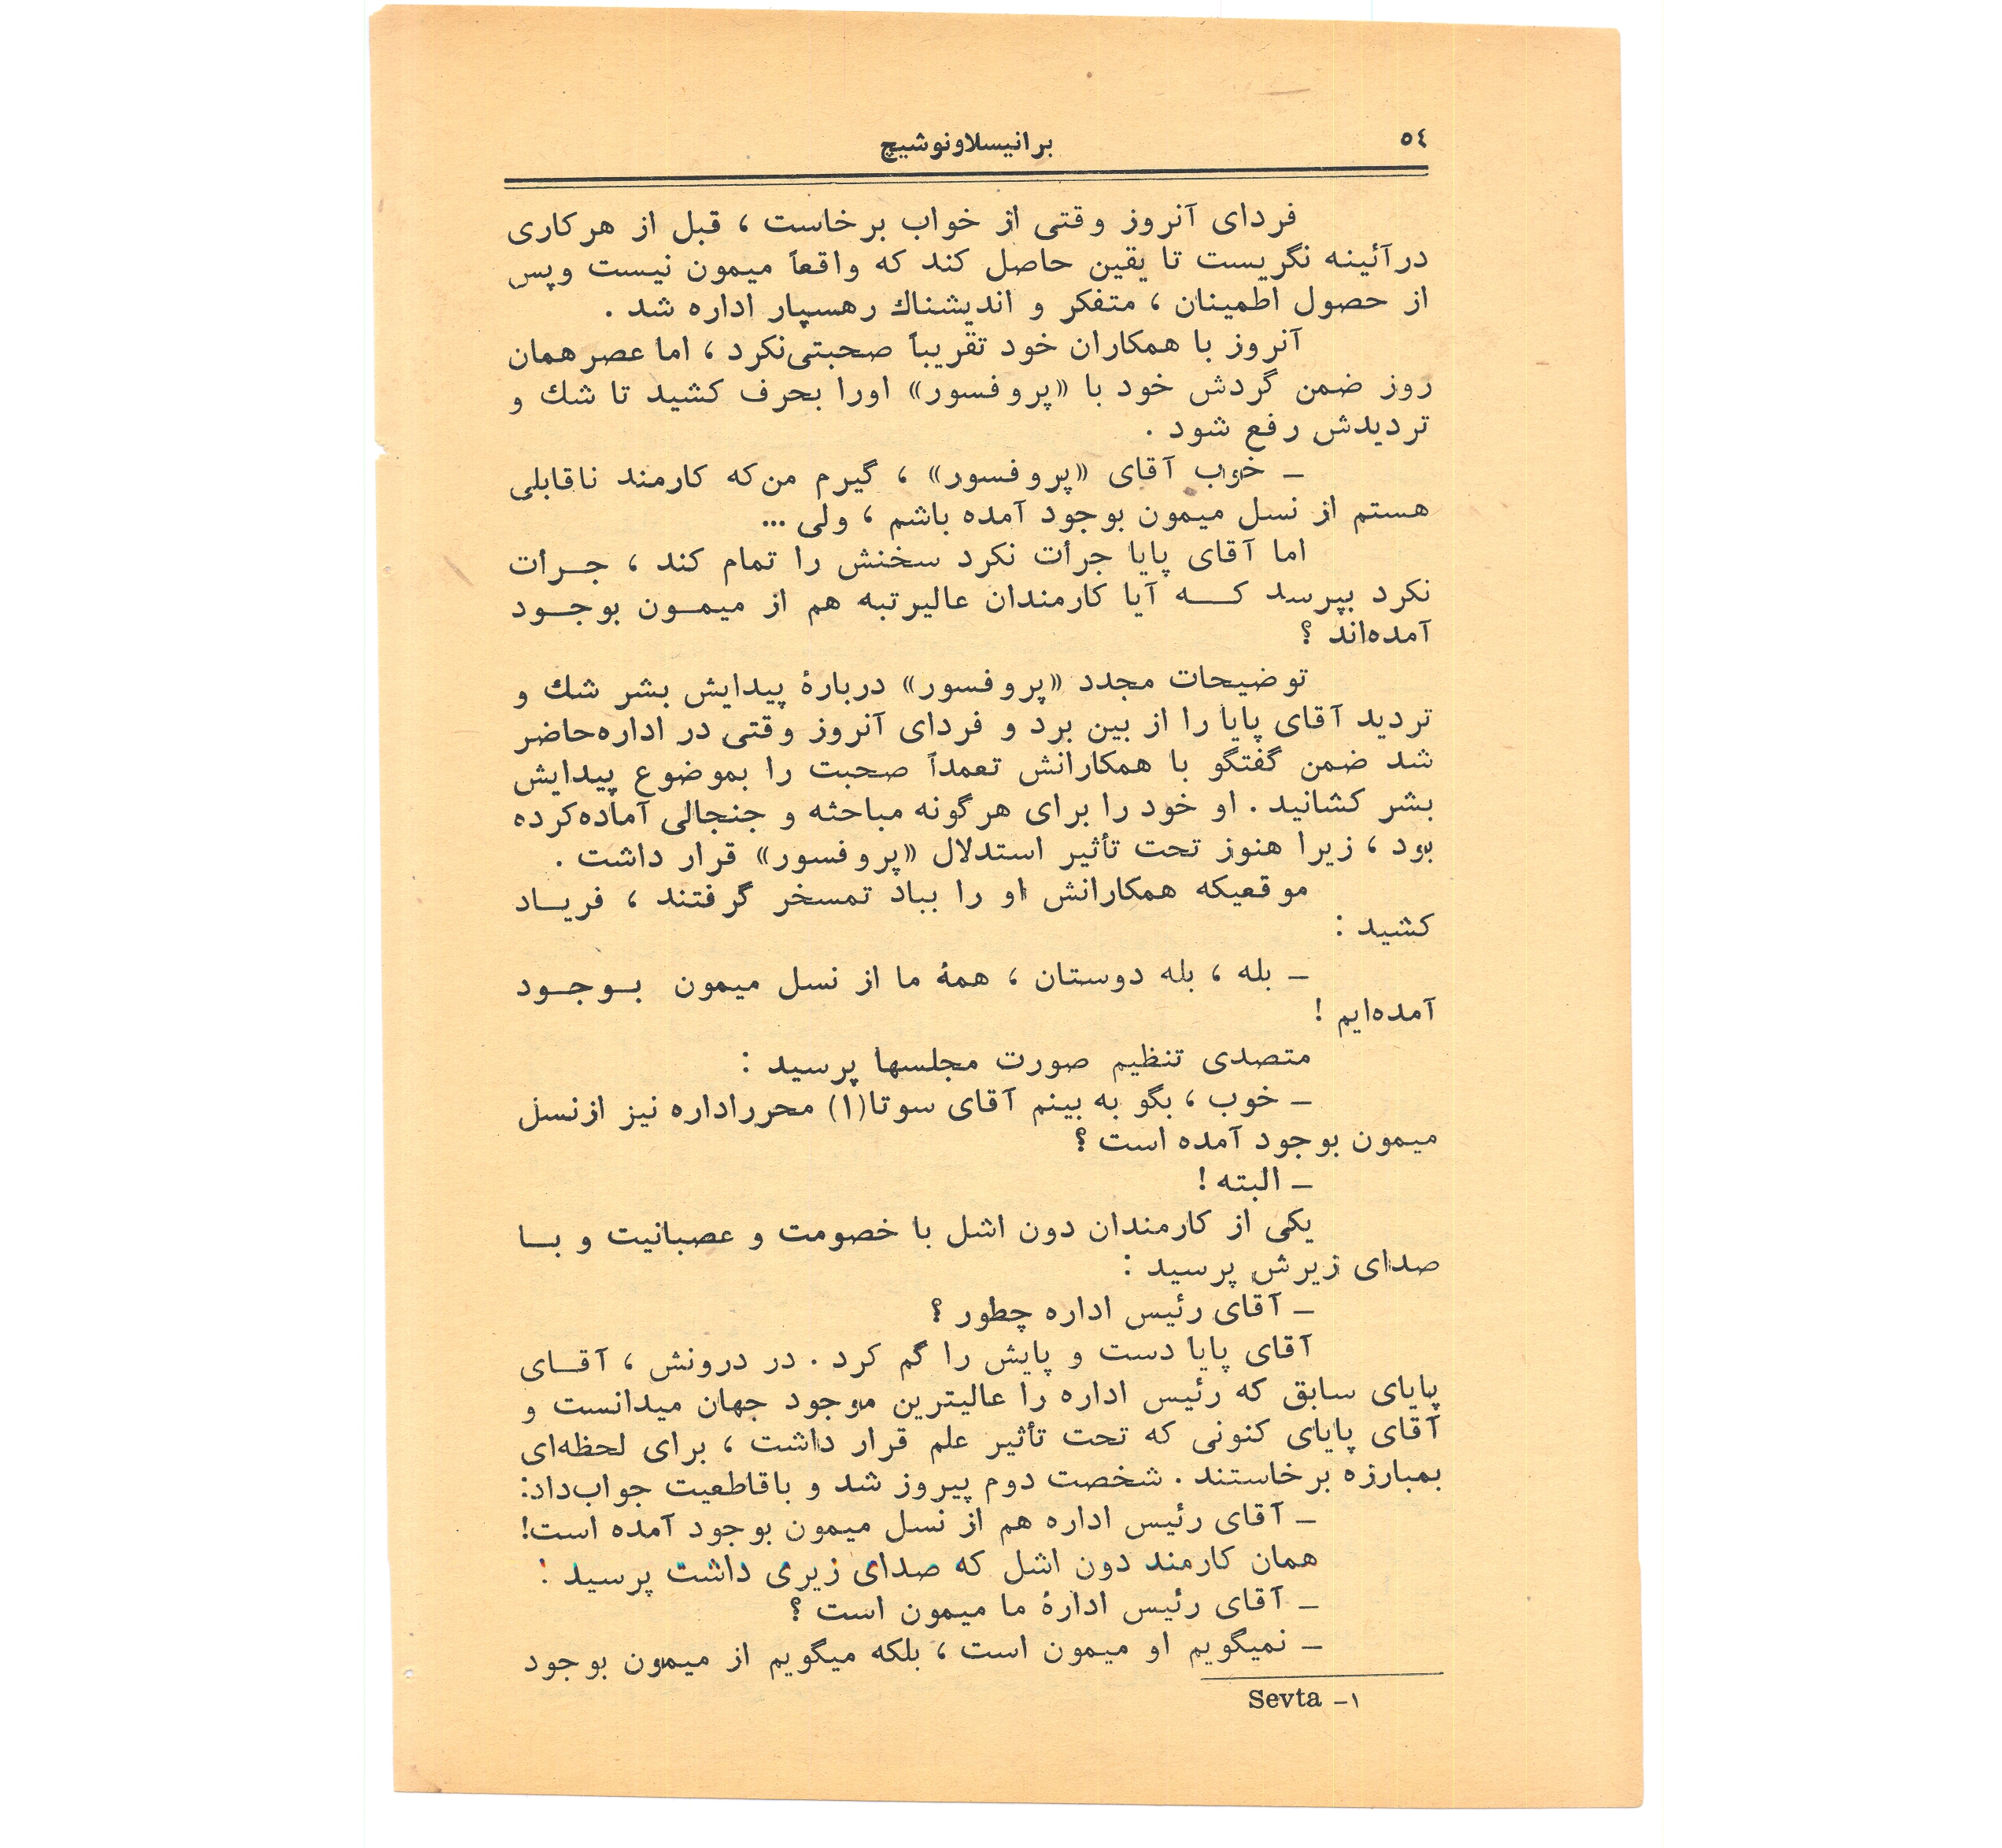 ٥٤
برانیسلاونوشیچ
فردای آنروز وقتی از خواب برخاست ، قبل از هرکاری
درآئینه نگریست تا یقین حاصل کند که واقعاً میمون نیست وپس
از حصول اطمینان ، متفکر و اندیشناك رهسپار اداره شد .
آنروز با همکاران خود تقریباً صحبتی‌نکرد ، اما عصرهمان
روز ضمن گردش خود با «پروفسور» اورا بحرف کشید تا شك و
تردیدش رفع شود .
ـ خوب آقای «پروفسور» ، گیرم من‌که کارمند ناقابلی
هستم از نسل میمون بوجود آمده باشم ، ولی ...
اما آقای پایا جرأت نکرد سخنش را تمام کند ، جـرات
نکرد بپرسد کـــه آیا کارمندان عالیرتبه هم از میمـون بوجـود
آمده‌اند ؟
توضیحات مجدد «پروفسور» دربارهٔ پیدایش بشر شك و
تردید آقای پایا را از بین برد و فردای آنروز وقتی در اداره‌حاضر
شد ضمن گفتگو با همکارانش تعمداً صحبت را بموضوع پیدایش
بشر کشانید . او خود را برای هرگونه مباحثه و جنجالی آماده‌کرده
بود ، زیرا هنوز تحت تأثیر استدلال «پروفسور» قرار داشت .
موقعیکه همکارانش او را بباد تمسخر گرفتند ، فریـاد
کشید :
ـ بله ، بله دوستان ، همهٔ ما از نسل میمون بـوجـود
آمده‌ایم !
متصدی تنظیم صورت مجلسها پرسید :
ـ خوب ، بگو به بینم آقای سوتا(۱) محرراداره نیز ازنسل
میمون بوجود آمده است؟
ـ البته !
یکی از کارمندان دون اشل با خصومت و عصبانیت و بـا
صدای زیرش پرسید :
ـ آقای رئیس اداره چطور ؟
آقای پایا دست و پایش را گم کرد . در درونش ، آقـای
پایای سابق که رئیس اداره را عالیترین موجود جهان میدانست و
آقای پایای کنونی که تحت تأثیر علم قرار داشت ، برای لحظه‌ای
بمبارزه برخاستند . شخصت دوم پیروز شد و باقاطعیت جواب‌داد:
ـ آقای رئیس اداره هم از نسل میمون بوجود آمده است!
همان کارمند دون اشل که صدای زیری داشت پرسید :
ـ آقای رئیس ادارهٔ ما میمون است ؟
ـ نمیگویم او میمون است ، بلکه میگویم از میمون بوجود
۱ـ Sevta